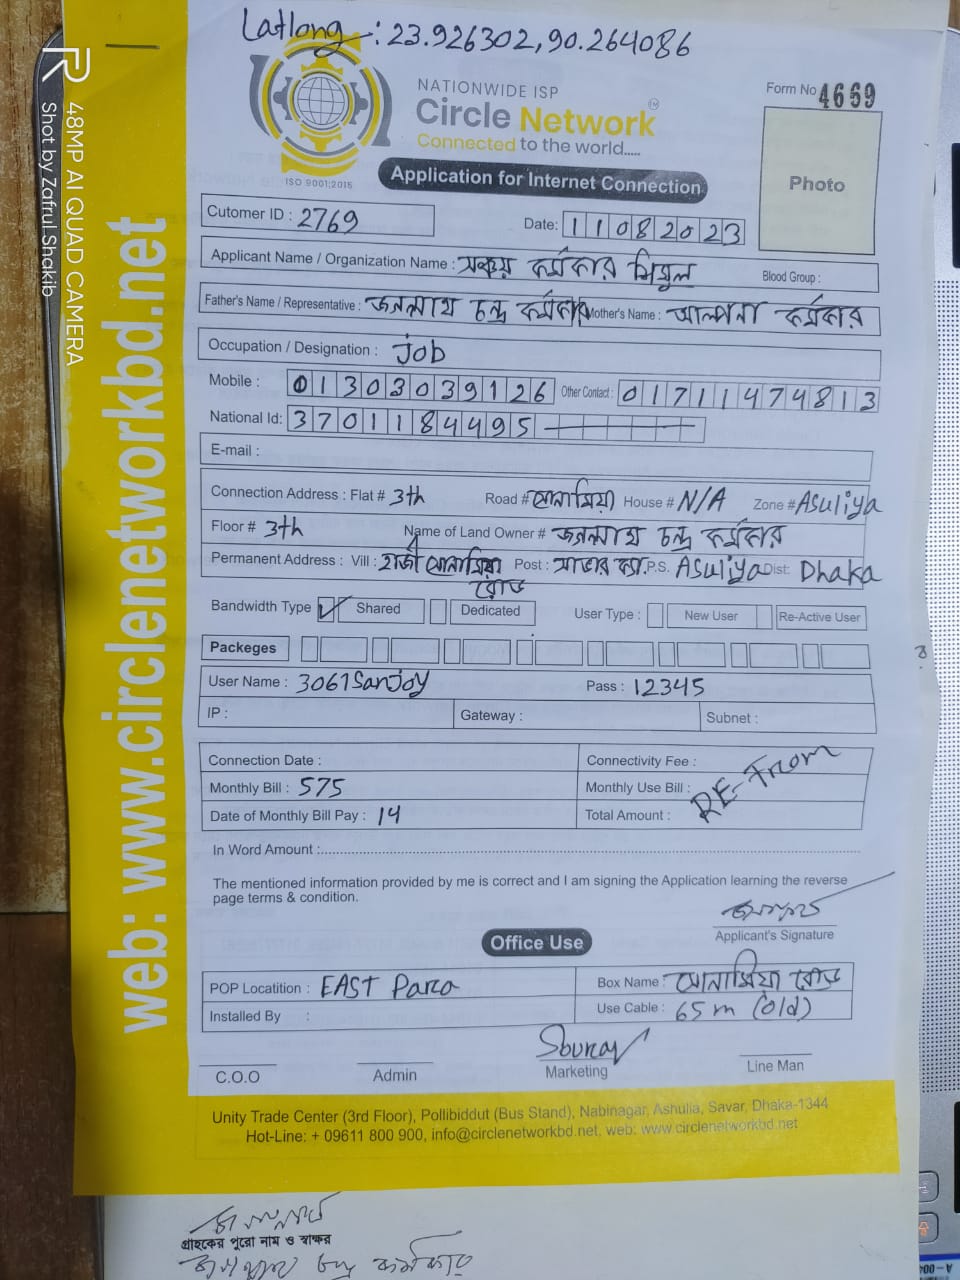 Latlong : 23.926302,90.264086
NATIONWIDE ISP
Circle Network
Connected to the world.....
ISO 9001:2015
Form No 4669
Photo
Application for Internet Connection
Cutomer ID : 2769
Date: 11082023
Applicant Name / Organization Name : সঞ্চয় কর্মকার শিমুল Blood Group :
Father's Name / Representative : জগন্নাথ চন্দ্র কর্মকার Mother's Name : আলপনা কর্মকার
Occupation / Designation : Job
Mobile : 01303039126 Other Contact : 01711474813
National Id: 3701184495
E-mail :
Connection Address : Flat # 3th Road # সোনামিয়া House # N/A Zone # Asuliya
Floor # 3th Name of Land Owner # জগন্নাথ চন্দ্র কর্মকার
Permanent Address : Vill : হাজী সোনামিয়া রোড Post : সাভার P.S. Asuliya Dist: Dhaka
Bandwidth Type Shared Dedicated User Type : New User Re-Active User
Packeges
User Name : 3061Sanjoy Pass : 12345
IP : Gateway : Subnet :
Connection Date : Connectivity Fee :
Monthly Bill : 575 Monthly Use Bill :
RE-From
Date of Monthly Bill Pay : 14 Total Amount :
In Word Amount :
The mentioned information provided by me is correct and I am signing the Application learning the reverse
page terms & condition.
Applicant's Signature
Office Use
POP Locatition : EAST Para Box Name : সোনামিয়া রোড
Installed By : Use Cable : 65m (Old)
Sourav
C.O.O Admin Marketing Line Man
Unity Trade Center (3rd Floor), Pollibiddut (Bus Stand), Nabinagar, Ashulia, Savar, Dhaka-1344
Hot-Line: + 09611 800 900, info@circlenetworkbd.net, web: www.circlenetworkbd.net
web: www.circlenetworkbd.net
গ্রাহকের পুরো নাম ও স্বাক্ষর
জগন্নাথ চন্দ্র কর্মকার
48MP AI QUAD CAMERA
Shot by Zafrul Shakib